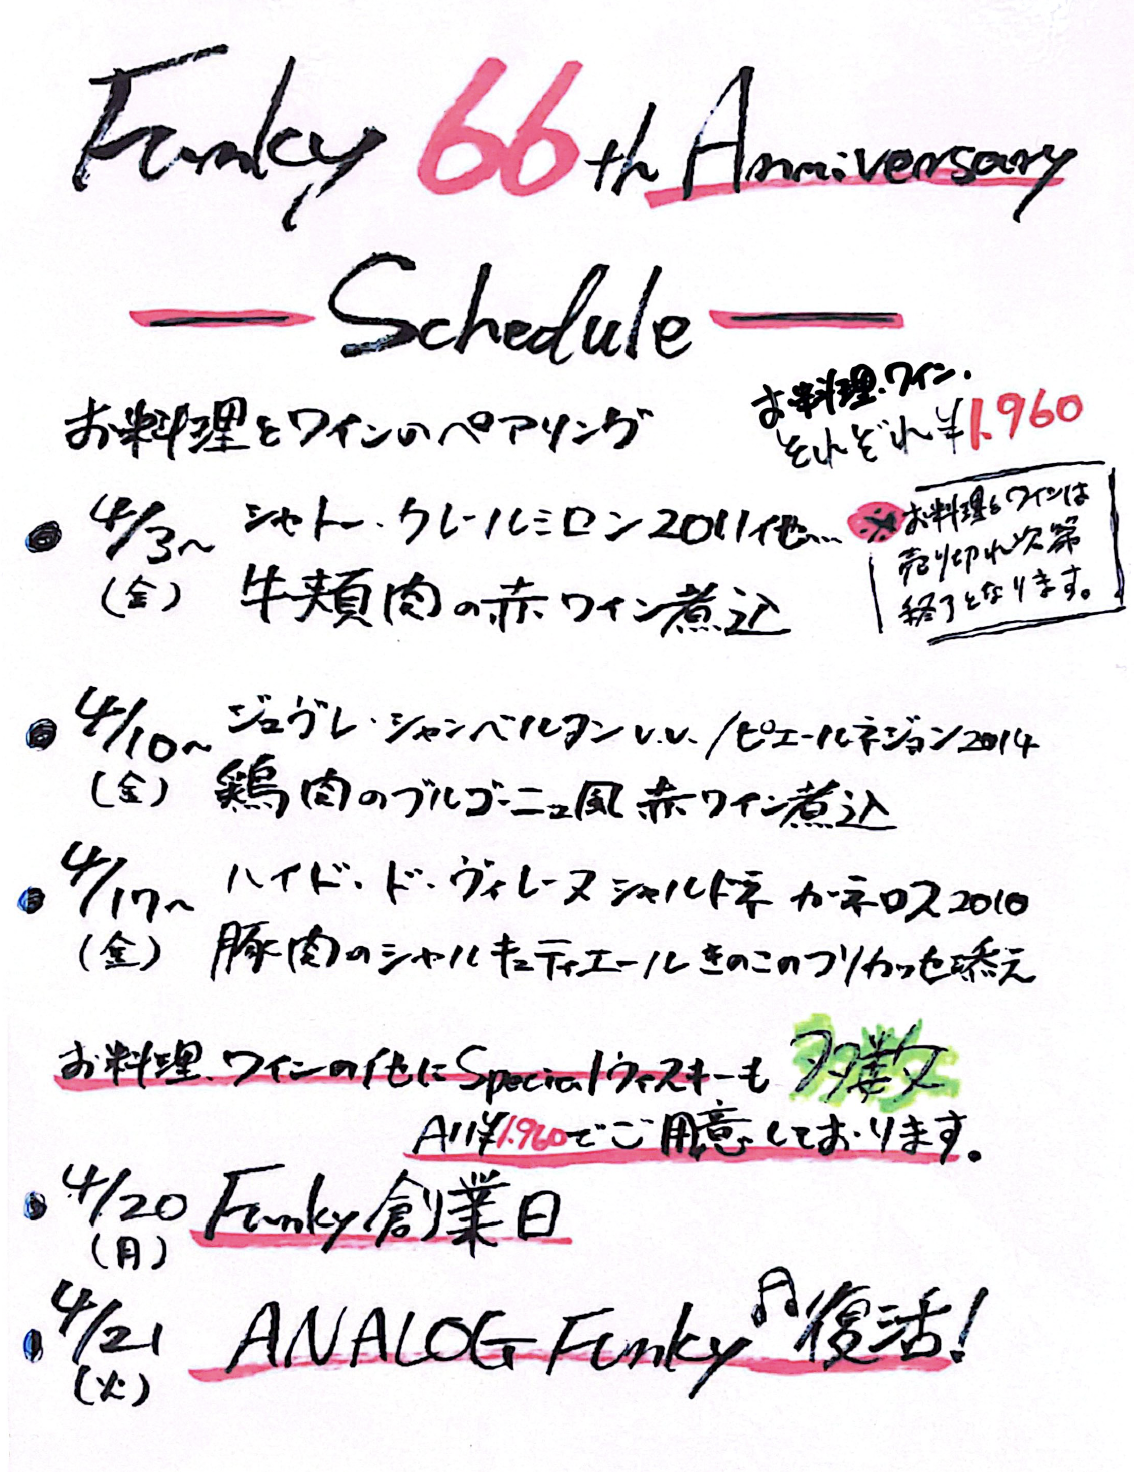 Funky 66th Anniversary
Schedule
お料理とワインのペアリング
お料理、ワイン、
それぞれ¥1.960
● 4/3〜 シャトー・クレールミロン2011他…
(金) 牛頬肉の赤ワイン煮込
※お料理とワインは
売り切れ次第
終了となります。
● 4/10〜 ジュヴレ・シャンベルタンv.v./ピエールネジョン2014
(金) 鶏肉のブルゴーニュ風赤ワイン煮込
● 4/17〜 ハイド・ド・ヴィレーヌ シャルドネ カーネロス2010
(金) 豚肉のシャルキュティエールきのこのフリカッセ添え
お料理、ワインの他にSpecialウィスキーも 多数
All¥1.960でご用意しております。
● 4/20 Funky創業日
(月)
● 4/21 ANALOG Funky♫復活!
(火)